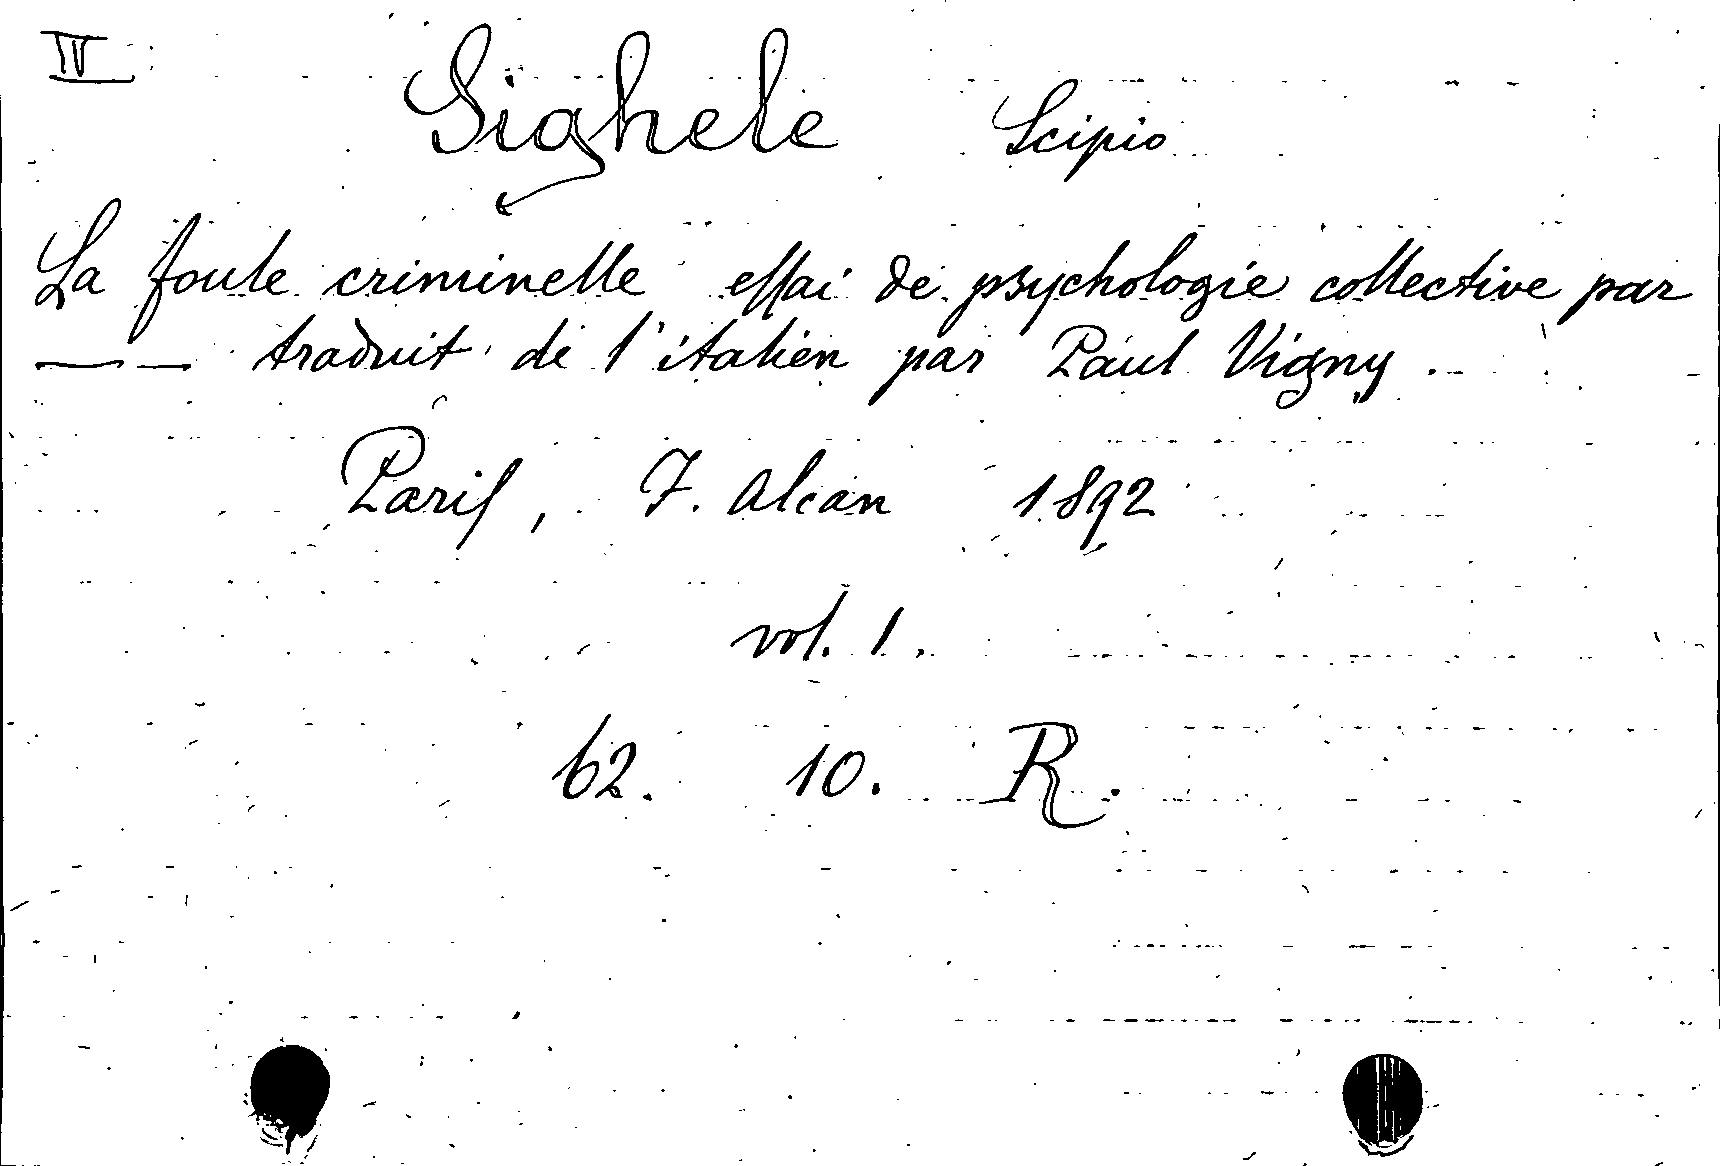 IV
Sighele Scipio
La foule criminelle eſſai de psychologie collective par
—— — traduit de l'italien par Paul Vigny.
Pariſ, F. Alcan 1892
vol. 1.
62. 10. R.